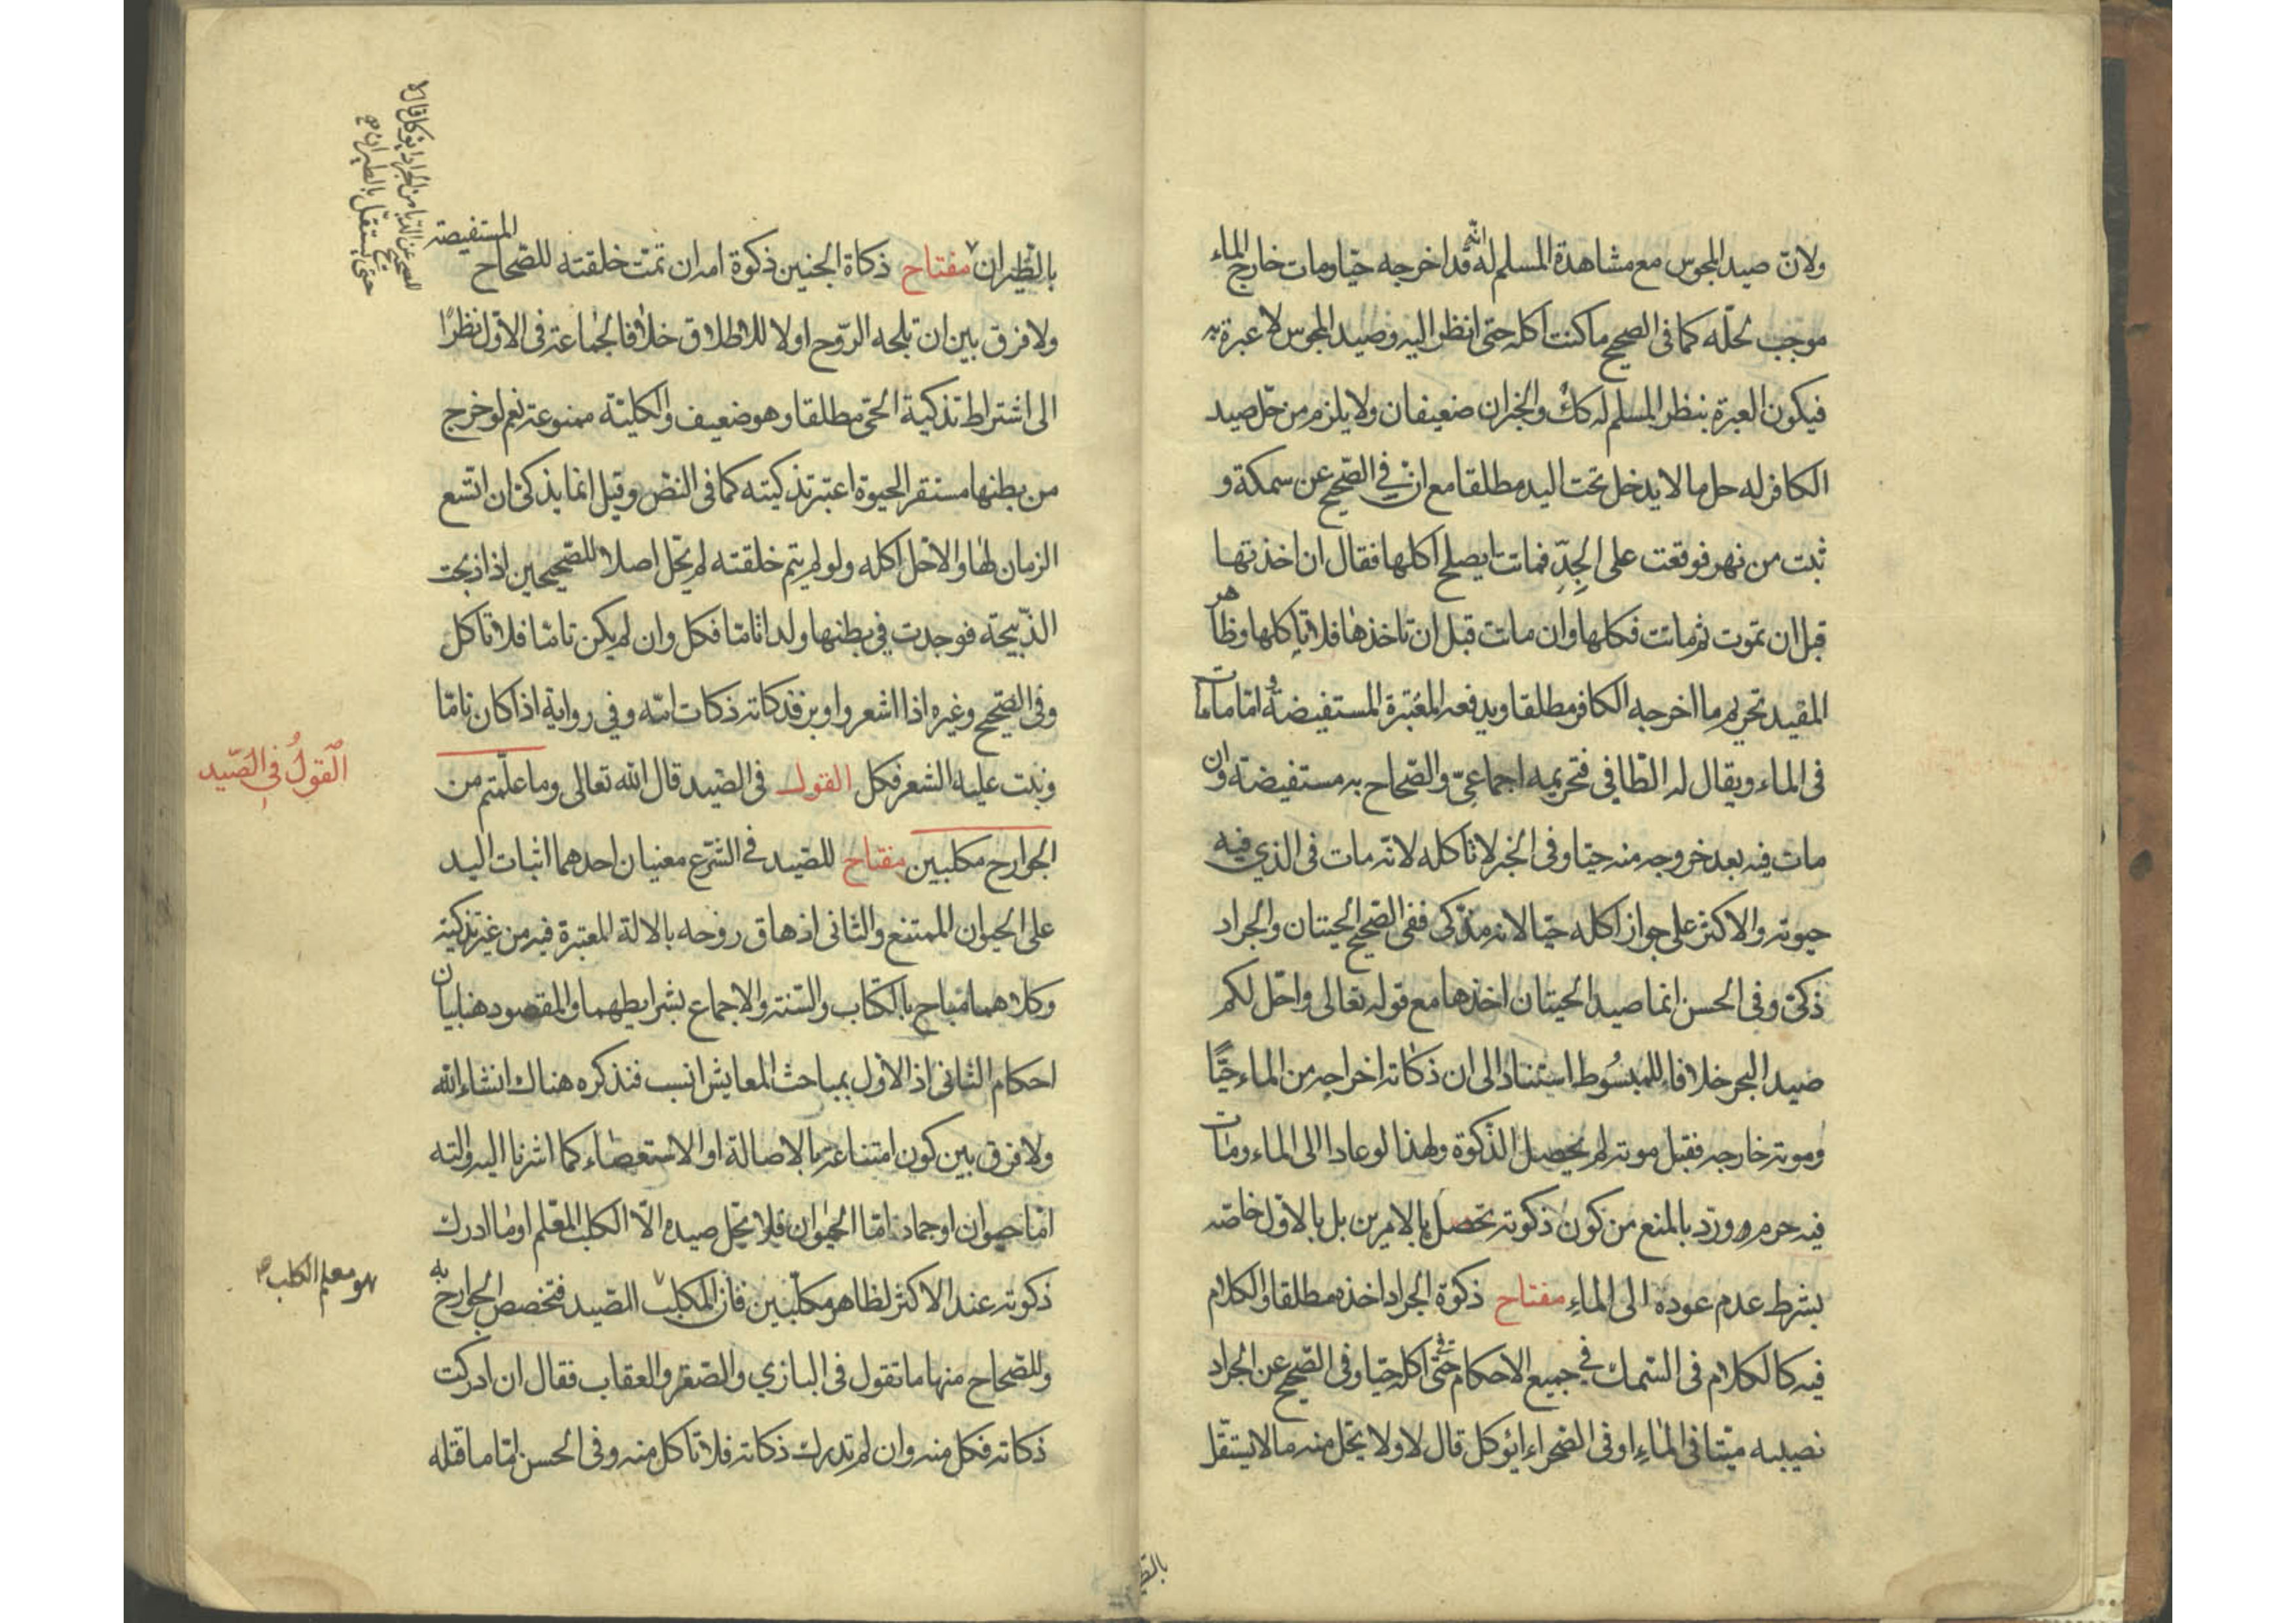 ولان صيد المجوس مع مشاهدة المسلم له انه قد اخرجه حيا ومات خارج الماء
موجب لحله كما فى الصحيح ما كنت اكله حتى انظر اليه وصيد المجوس لا عبرة به
فيكون العبرة بنظر المسلم له كك والخبران ضعيفان ولا يلزم من حل صيد
الكافر له حل ما لا يدخل تحت اليد مطلقا مع ان في الصحيح عن سمكة و
ثبت من نهر فوقعت على الجد فماتت ايصلح اكلها فقال ان اخذتها
قبل ان تموت ثم ماتت فكلها وان ماتت قبل ان تاخذها فلا تاكلها وظاهر
المفيد تحريم ما اخرجه الكافر مطلقا ويدفعه المعتبرة المستفيضة و اما ما مات
فى الماء ويقال له الطافي فتحريمه اجماعي والصحاح به مستفيضة وان
مات فيه بعد خروجه منه حيا وفى الخبر لا تاكله لانه مات فى الذي فيه
حيوته والاكثر على جواز اكله حيا لانه مذكى ففى الصحيح الحيتان والجراد
ذكى وفى الحسن انما صيد الحيتان اخذها مع قوله تعالى واحل لكم
صيد البحر خلافا للمبسوط استنادا الى ان ذكاته اخراجه من الماء حيا
وموته خارجه فقبل موته لم يحصل الذكوة ولهذا لو عادا الى الماء ومات
فيه حرم ورد بالمنع من كون ذكوته تحصل بالامرين بل بالاول خاصة
بشرط عدم عوده الى الماء مفتاح ذكوة الجراد اخذه مطلقا والكلام
فيه كالكلام فى السمك في جميع الاحكام حتى فى اكله حيا وفى الصحيح عن الجراد
نصيبه ميتا فى الماء او فى الصحراء ايؤكل قال لا ولا يحل منه ما لا يستقل
بالطيران
بالطيران مفتاح ذكاة الجنين ذكوة امه ان تمت خلقته للصحاح المستفيضة
ولا فرق بين ان تلجه الروح اولا للاطلاق خلافا لجماعة فى الاول نظرا
الى اشتراط تذكية الحى مطلقا وهو ضعيف والكلية ممنوعة نعم لو خرج
من بطنها مستقر الحيوة اعتبر تذكيته كما فى النص وقيل انما يذكى ان اتسع
الزمان لها والا حل اكله ولو لم يتم خلقته لم يحل اصلا للصحيحين اذا ذبحت
الذبيحة فوجدت في بطنها ولدا تاما فكل وان لم يكن تاما فلا تاكل
وفى الصحيح وغيره اذا اشعر واوبر فذكاته ذكات امه وفي رواية اذا كان تاما
ونبت عليه الشعر فكل القول فى الصيد قال الله تعالى وما علمتم من
الجوارح مكلبين مفتاح للصيد في الشرع معنيان احدهما اثبات اليد
على الحيوان الممتنع والثانى اذهاق روحه بالالة المعتبرة فيه من غير تذكية
وكلاهما مباح بالكتاب والسنة والاجماع بشرايطهما والمقصود هنا بيان
احكام الثانى اذ الاول بمباحث المعايش انسب فنذكره هناك انشاء الله
ولا فرق بين كون امتناعه بالاصالة او الاستعصاء كما اشرنا اليه والته
اما حيوان او جماد اما الحيوان فلا يحل صيده الا الكلب المعلم او ما ادرك
ذكوته عند الاكثر لظاهر مكلبين فان المكلب للصيد فتخصص الجوارح به
وللصحاح منها ما تقول فى البازي والصقر والعقاب فقال ان ادركت
ذكاته فكل منه وان لم تدرك ذكاته فلا تاكل منه وفى الحسن اما ما قتله
القول في الصيد
هو معلم الكلب
حتى يستقل بالطيران